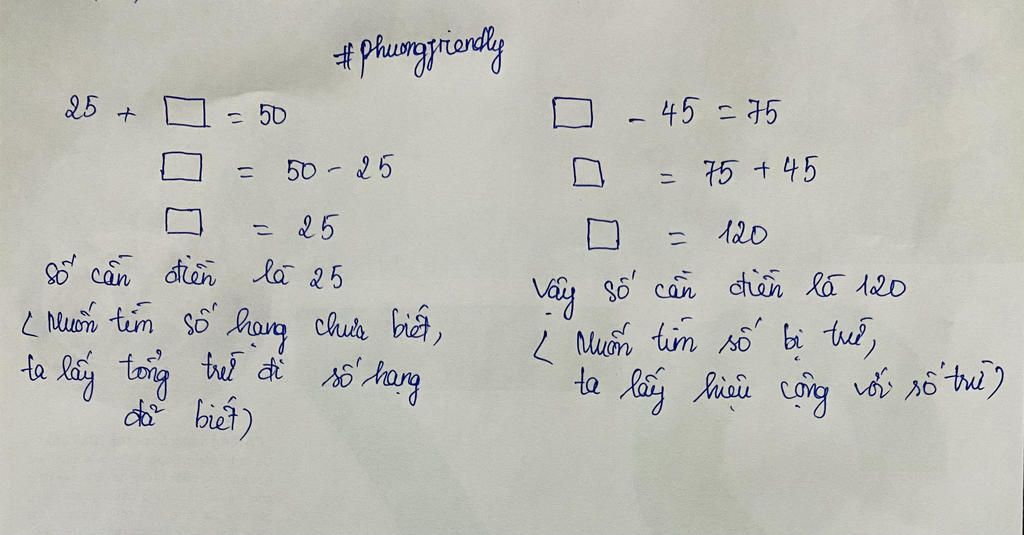 #phuongfriendly
25 + □ = 50
□ = 50 - 25
□ = 25
số cần điền là 25
( Muốn tìm số hạng chưa biết,
ta lấy tổng trừ đi số hạng
đã biết)
□ - 45 = 75
□ = 75 + 45
□ = 120
Vậy số cần điền là 120
( Muốn tìm số bị trừ,
ta lấy hiệu cộng với số trừ)